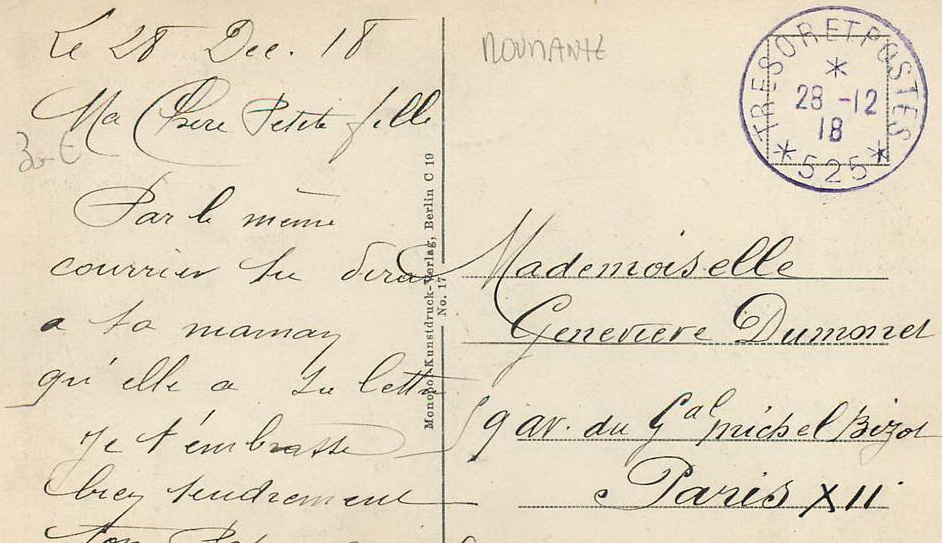 Le 28 Dec. 18
Ma Chère Petite fille
Par le même
courrier tu diras
a ta maman
qu'elle a la lettre
Je t'embrasse
bien tendrement
ton
ROUMANIE
TRESOR ET POSTES
28-12
18
* 525 *
Monopol-Kunstdruck-Verlag, Berlin C 19
No. 17
Mademoiselle
Genevieve Dumonet
9 av. du Gal Michel Bizot
Paris XII